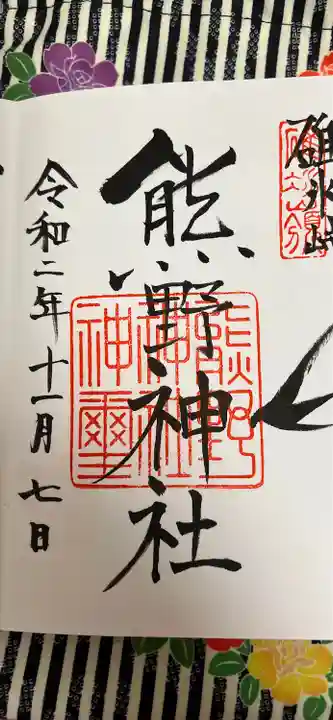 碓氷峠
熊野神社
熊野神社神璽
令和二年十一月七日